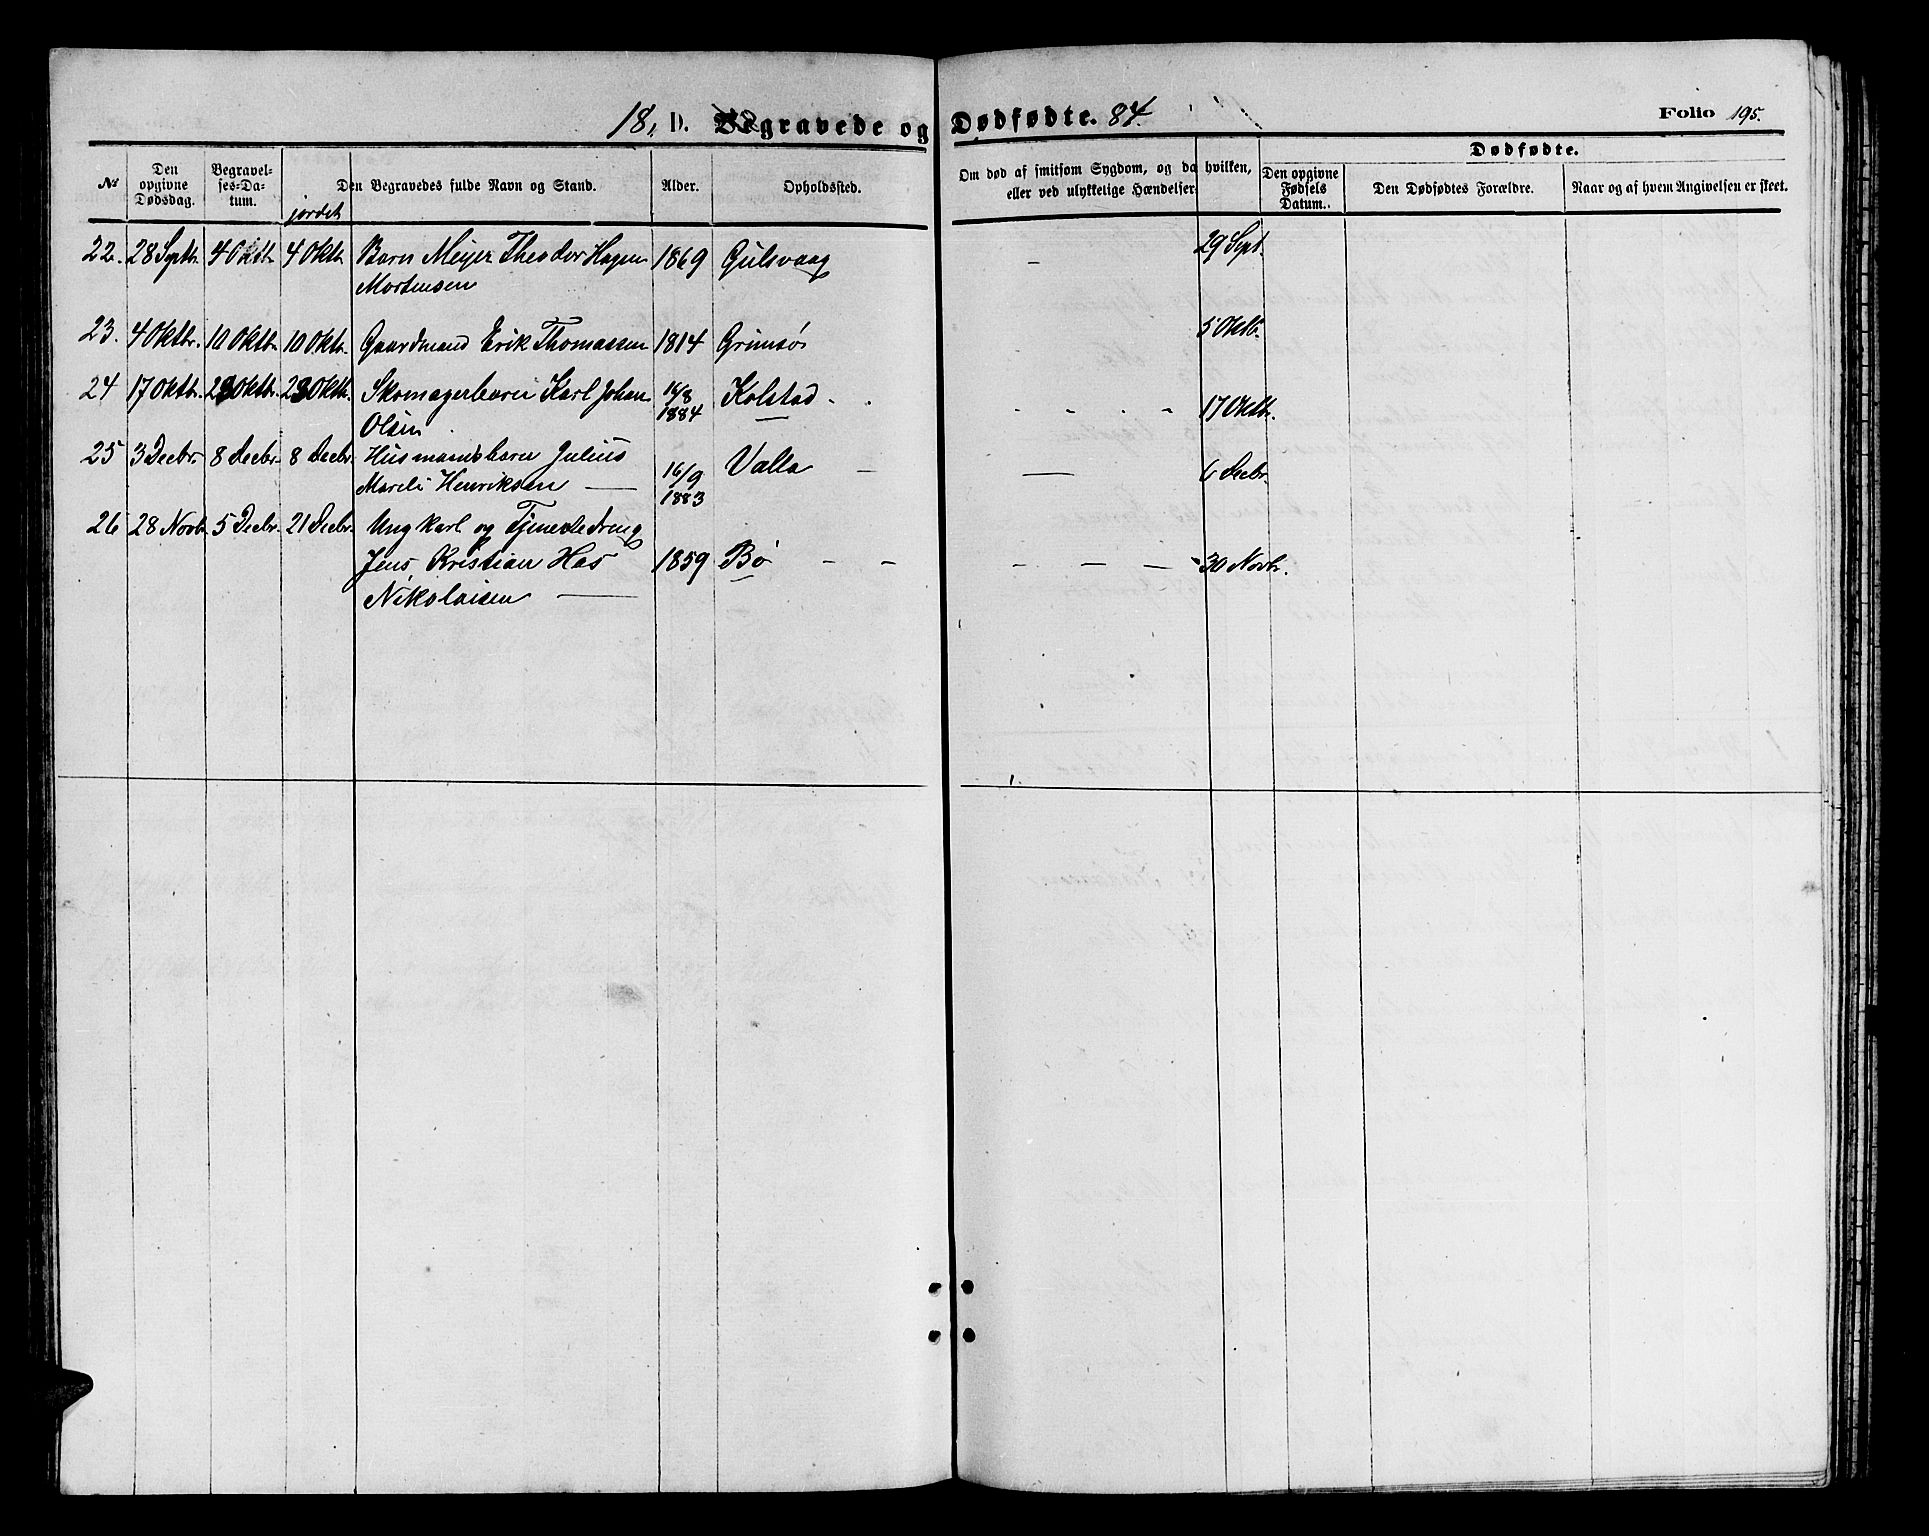 18, D. Begravede og Dødfødte. 84. Folio 195.
Dødfødte.
№ Den opgivne Dødsdag. Begravelses-Datum. jordet Den Begravedes fulde Navn og Stand. Alder. Opholdssted. Om død af smitsom Sygdom, og da hvilken, eller ved ulykkelige Hændelser. Den opgivne Fødsels Datum. Den Dødfødtes Forældre. Naar og af hvem Angivelsen er skeet.
22. 28 Septbr. 4 Oktbr. 4 Oktbr. Barn Meyer Theodor Hagen 1869 Gulsvaag - 29 Sept.
Mortensen
23. 4 Oktbr. 10 Oktbr. 10 Oktr. Gaardmand Erik Thomassen 1814 Grimsø 5 Oktb.
24 17 Oktbr. 23 Oktbr. 23 Oktbr. Skomagerbarn Karl Johan 16/8 1884 Kolstad - 17 Oktbr.
Olsen
25 3 Decbr. 8 Decbr. 8 Decbr. Husmandsbarn Julius 16/9 1883 Valla - 6 Decbr.
Mareli Henriksen
26 28 Novbr. 5 Decbr. 21 Decbr. Ungkarl og Tjenestedreng
Jens Kristian Has 1859 Bø - - - - - 30 Novbr.
Nikolaisen